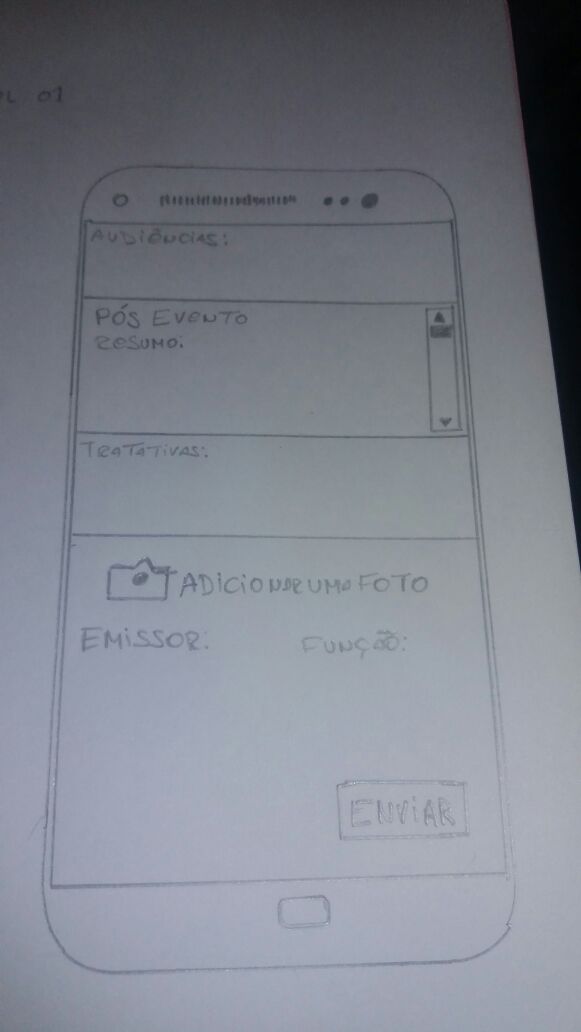 01
AUDIÊNCIAS:
PÓS EVENTO
RESUMO:
TRATATIVAS:
ADICIONAR UMA FOTO
EMISSOR: FUNÇÃO:
ENVIAR